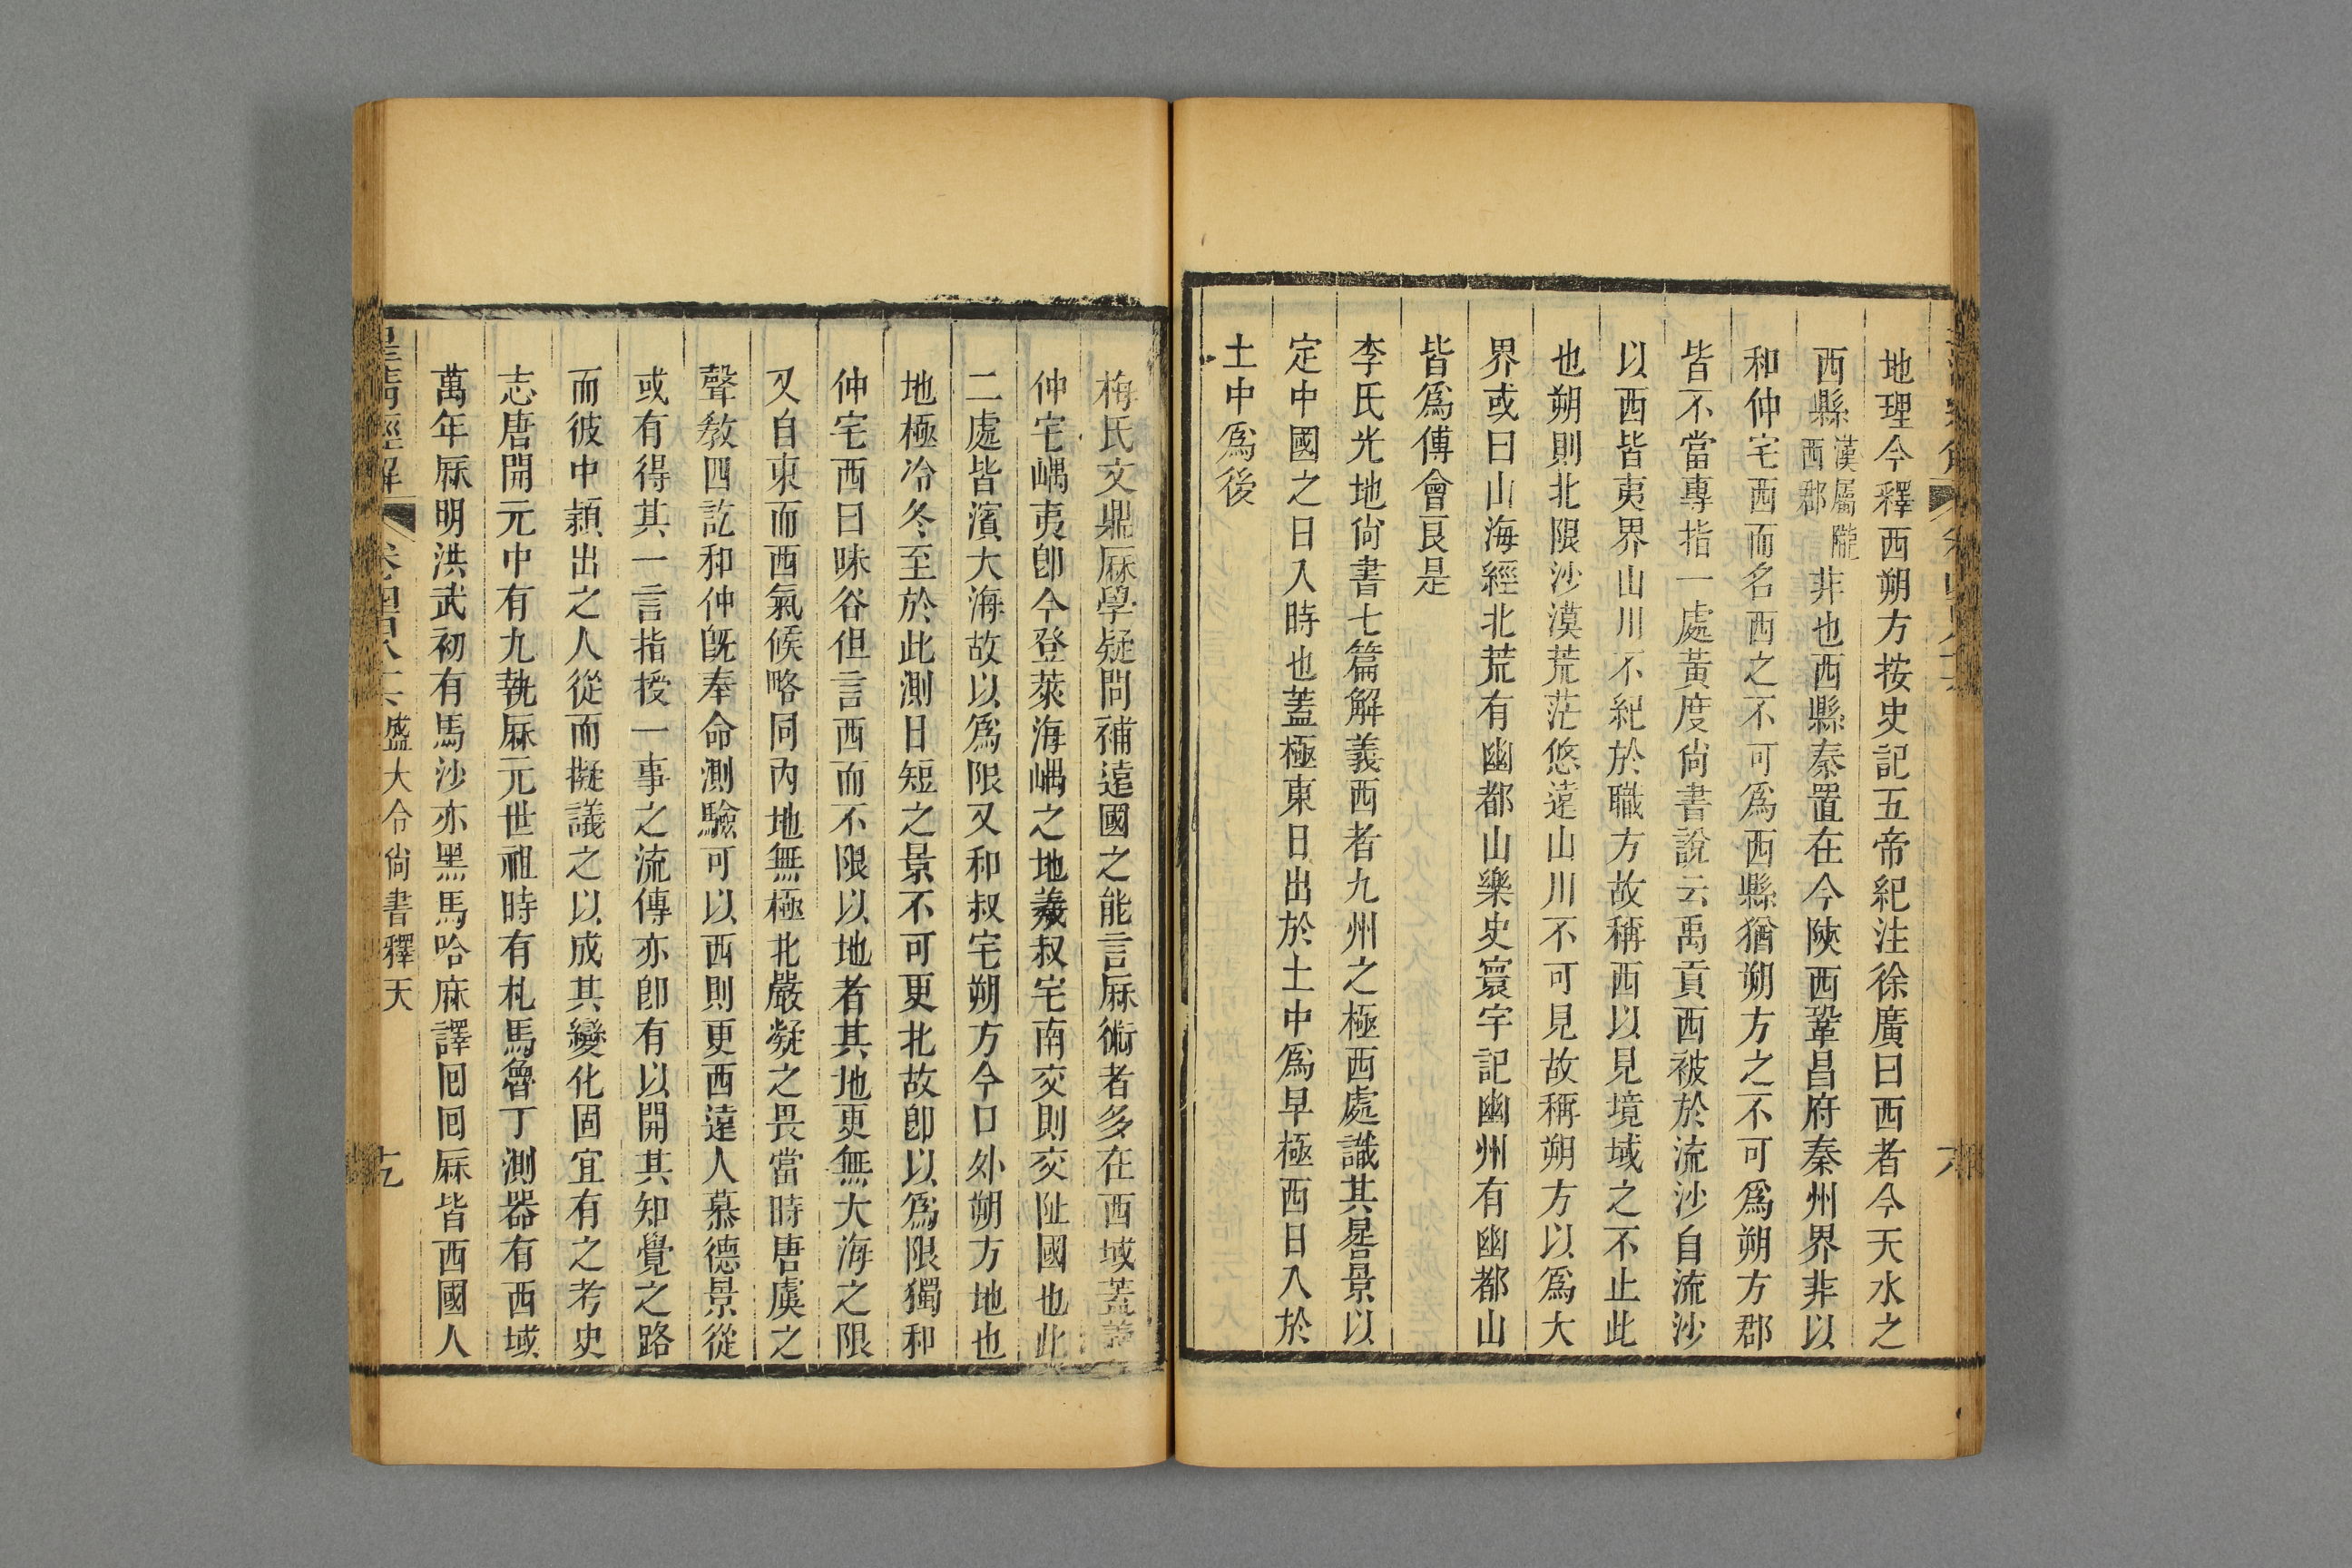 地理今釋西朔方按史記五帝紀注徐廣曰西者今天水之
西縣漢屬隴西郡非也西縣秦置在今陝西鞏昌府秦州界非以
和仲宅西而名西之不可爲西縣猶朔方之不可爲朔方郡
皆不當專指一處黃度尙書說云禹貢西被於流沙自流沙
以西皆夷界山川不紀於職方故稱西以見境域之不止此
也朔則北限沙漠荒茫悠遠山川不可見故稱朔方以爲大
界或曰山海經北荒有幽都山樂史寰宇記幽州有幽都山
皆爲傅會艮是
李氏光地尙書七篇解義西者九州之極西處識其晷景以
定中國之日入時也蓋極東日出於土中爲早極西日入於
土中爲後
梅氏文鼎厤學疑問補遠國之能言厤術者多在西域蓋
仲宅嵎夷卽今登萊海嵎之地羲叔宅南交則交阯國也此
二處皆濱大海故以爲限又和叔宅朔方今口外朔方地也
地極冷冬至於此測日短之景不可更北故卽以爲限獨和
仲宅西曰昧谷但言西而不限以地者其地更無大海之限
又自東而西氣候略同內地無極北嚴凝之畏當時唐虞之
聲敎四訖和仲旣奉命測驗可以西則更西遠人慕德景從
或有得其一言指授一事之流傳亦卽有以開其知覺之路
而彼中穎出之人從而擬議之以成其變化固宜有之考史
志唐開元中有九執厤元世祖時有札馬魯丁測器有西域
萬年厤明洪武初有馬沙亦黑馬哈麻譯囘囘厤皆西國人
皇淸經解 卷 盛大令尙書釋天